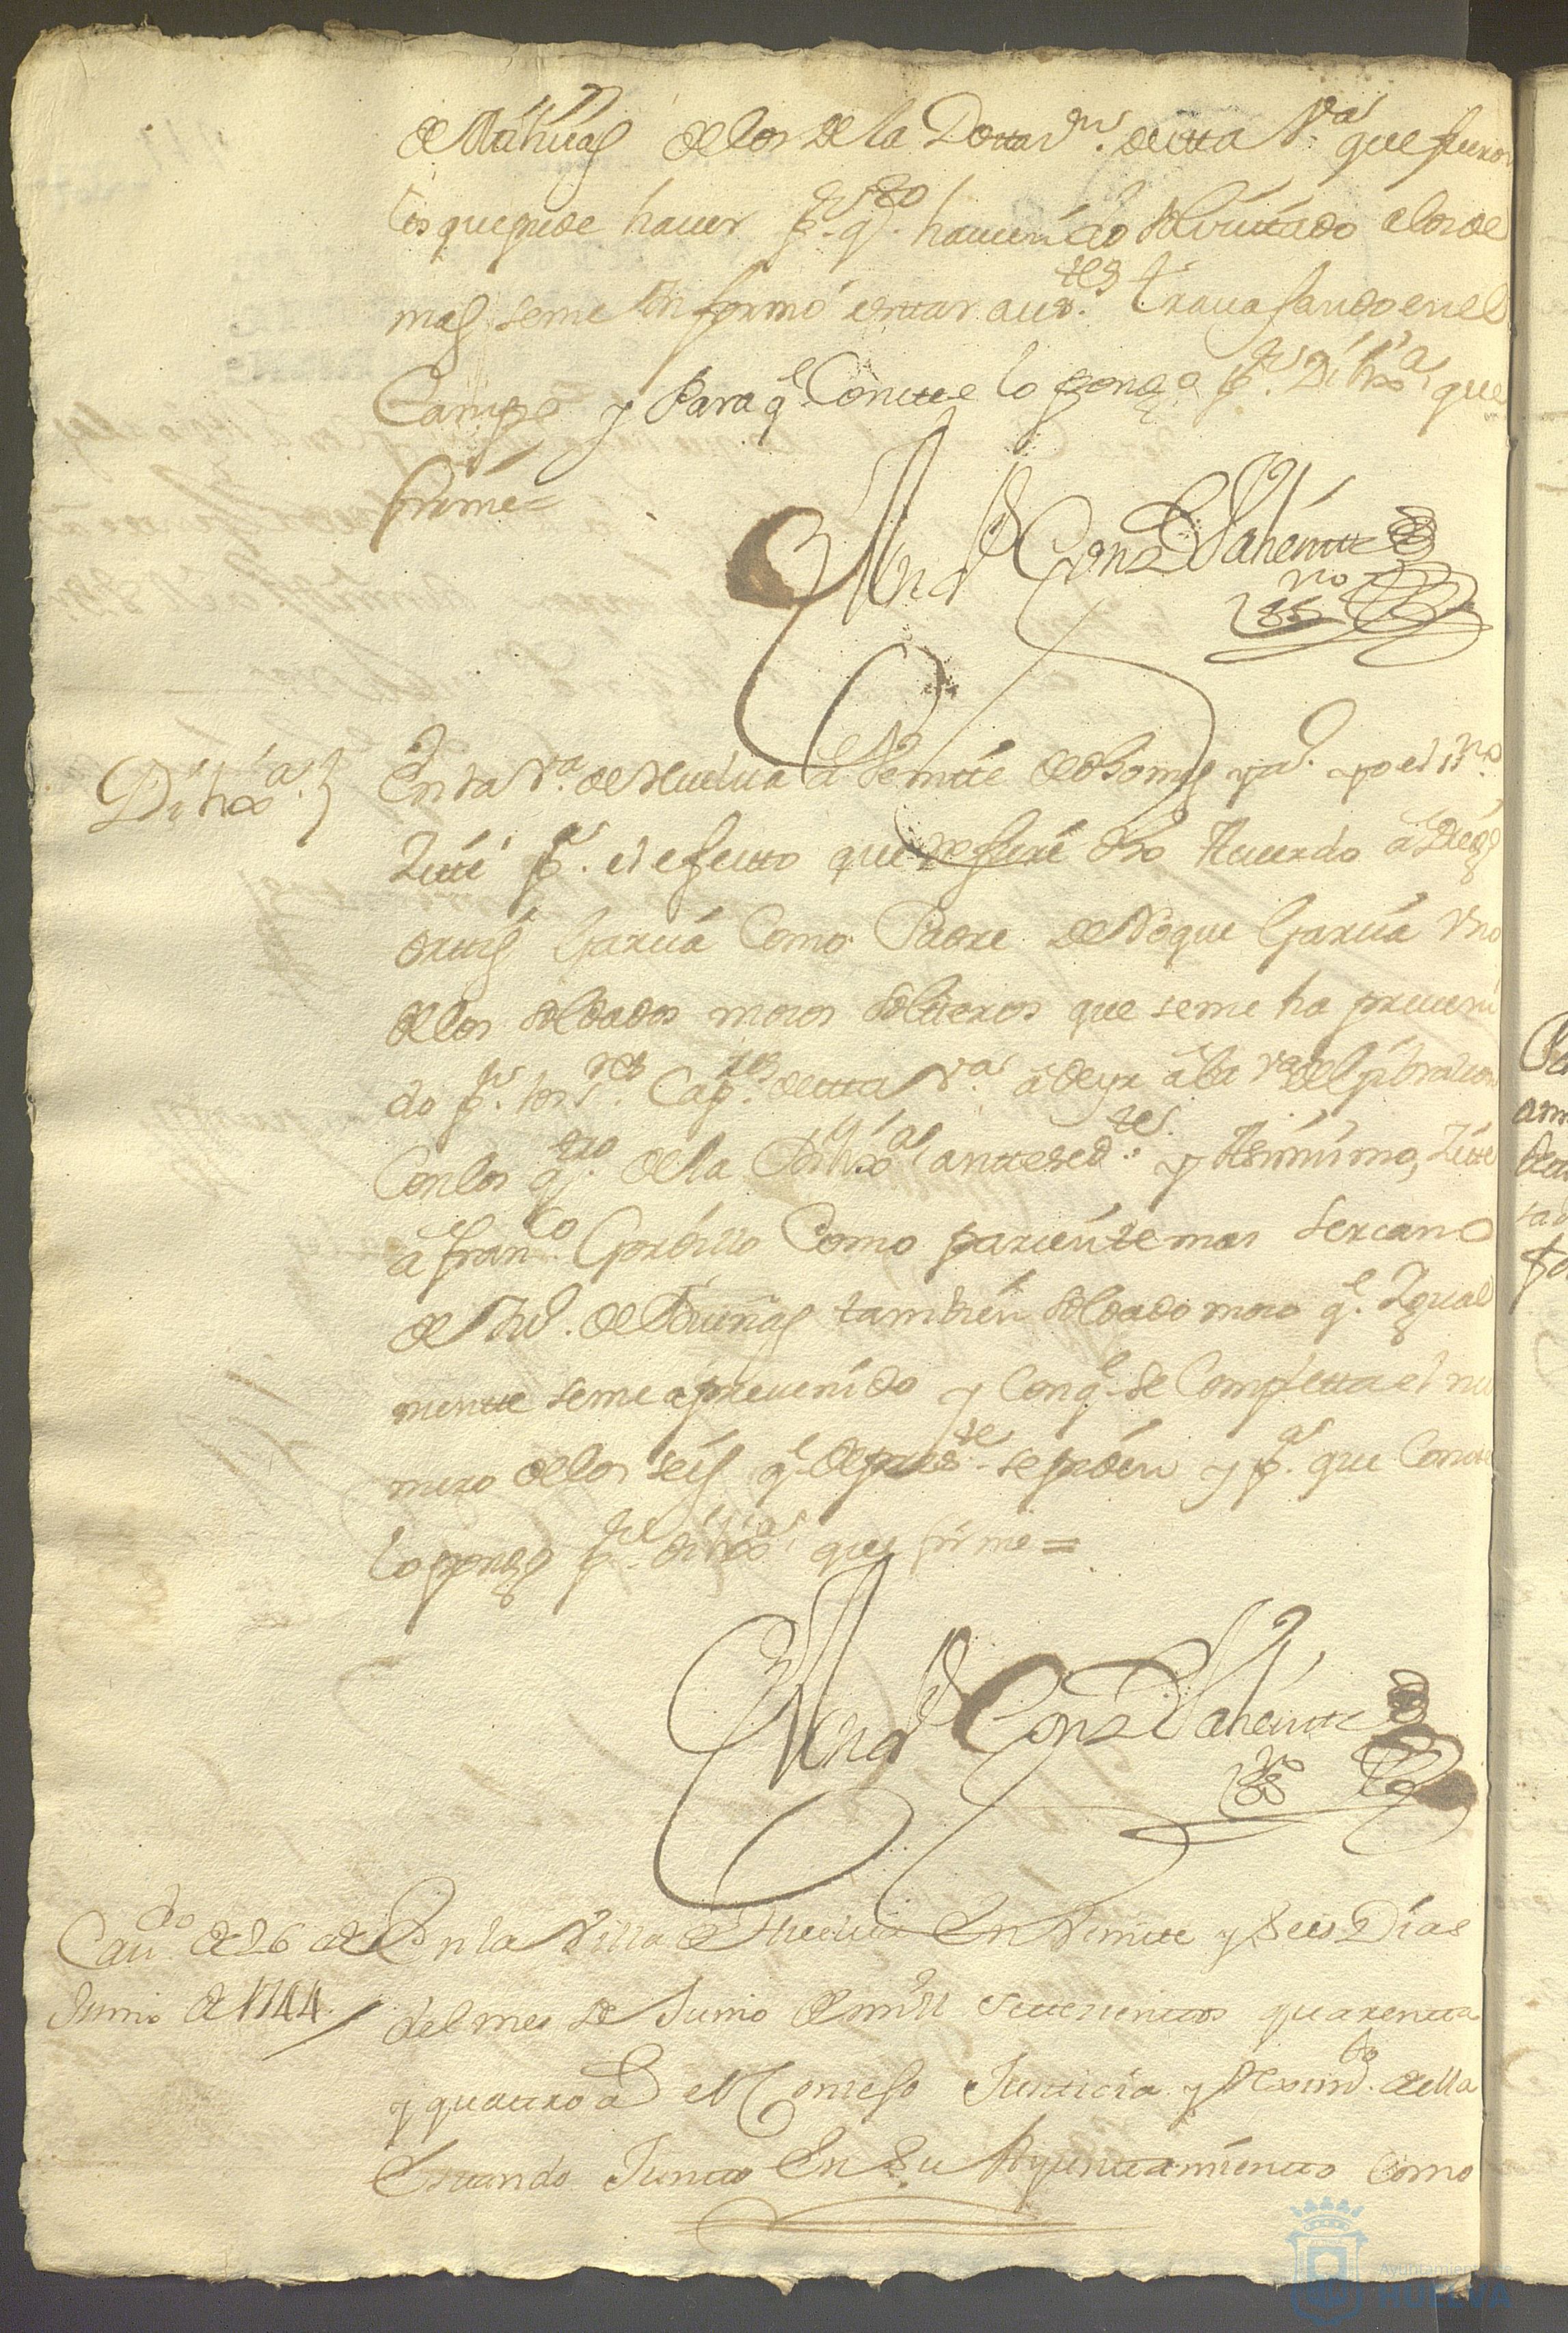 de Milicias de los de la Dottaz.n de esta V.a que fueron
los que pude haver p.r q.do haviendo solicitado a los de
mas se me informó estar aus.tes travajando en el
Campo y Para q.e Conste lo pongo p.r Dilix.a que
firmé=
And.s Gonz
ss.no
Dilix.a En la V.a de Huelva a Veinte de dho mes y a.o yo el ss.no
Zité p.a el efecto que refiere dho Acuerdo a Diego
García Como Padre de Roque García Uno
de los soldados mosos solteros que se me ha preveni
do p.r los s.res Cap.res de esta V.a
Con los q.tro de la Dilix.a anttesed.te y Asimismo, Zité
a Fran.co Gordillo Como pariente mas sercano
de de Dueñas tambien soldado moso q.e Igual
mente se me a prevenido y Con q.e se Completta el nu
mero de los seis q.e de pres.te se piden y p.a que Conste
lo pongo p.r dilix.a que firme=
And.s Gonz
ss.no
Cav.do de 26 de
Junio de 1744
En la Villa de Huelva En Veinte y Seis Dias
del mes de Junio de mill settecientos quarenta
y quattro a.s el Consejo Justicia y Reximi.to de ella
Estando Junto En Su Ayuntamiento Como
Ayuntamiento
HUELVA